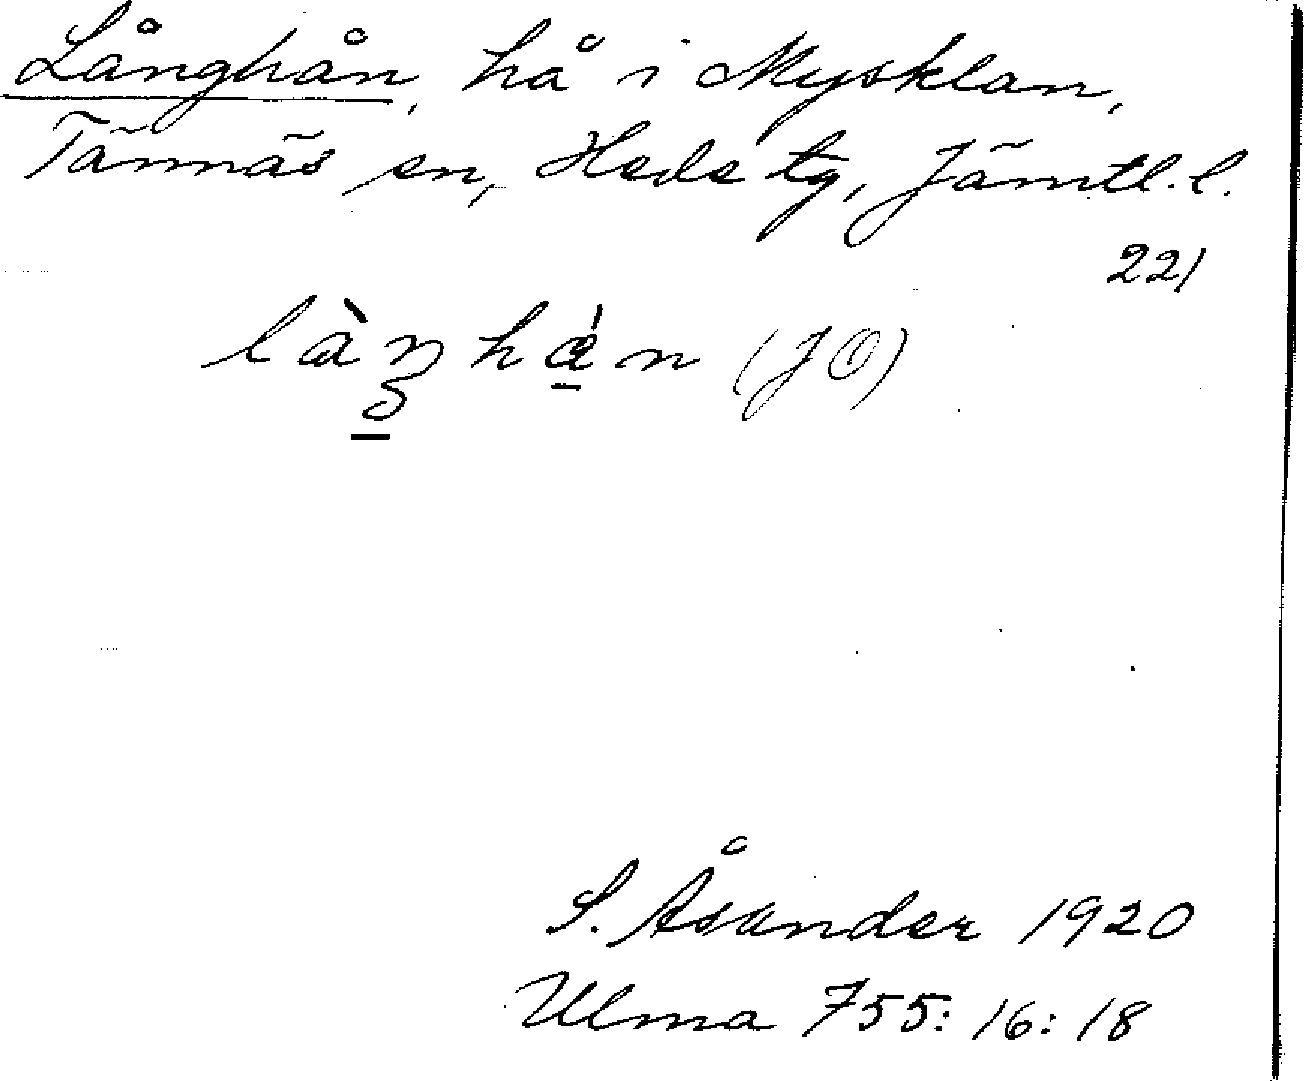 Långhån, hå i Mysklan,
Tännäs sn, Hede tg, Jämtl. l.
221
làŋhá̱n (JÖ)
S. Åsander 1920
Ulma 755:16:18